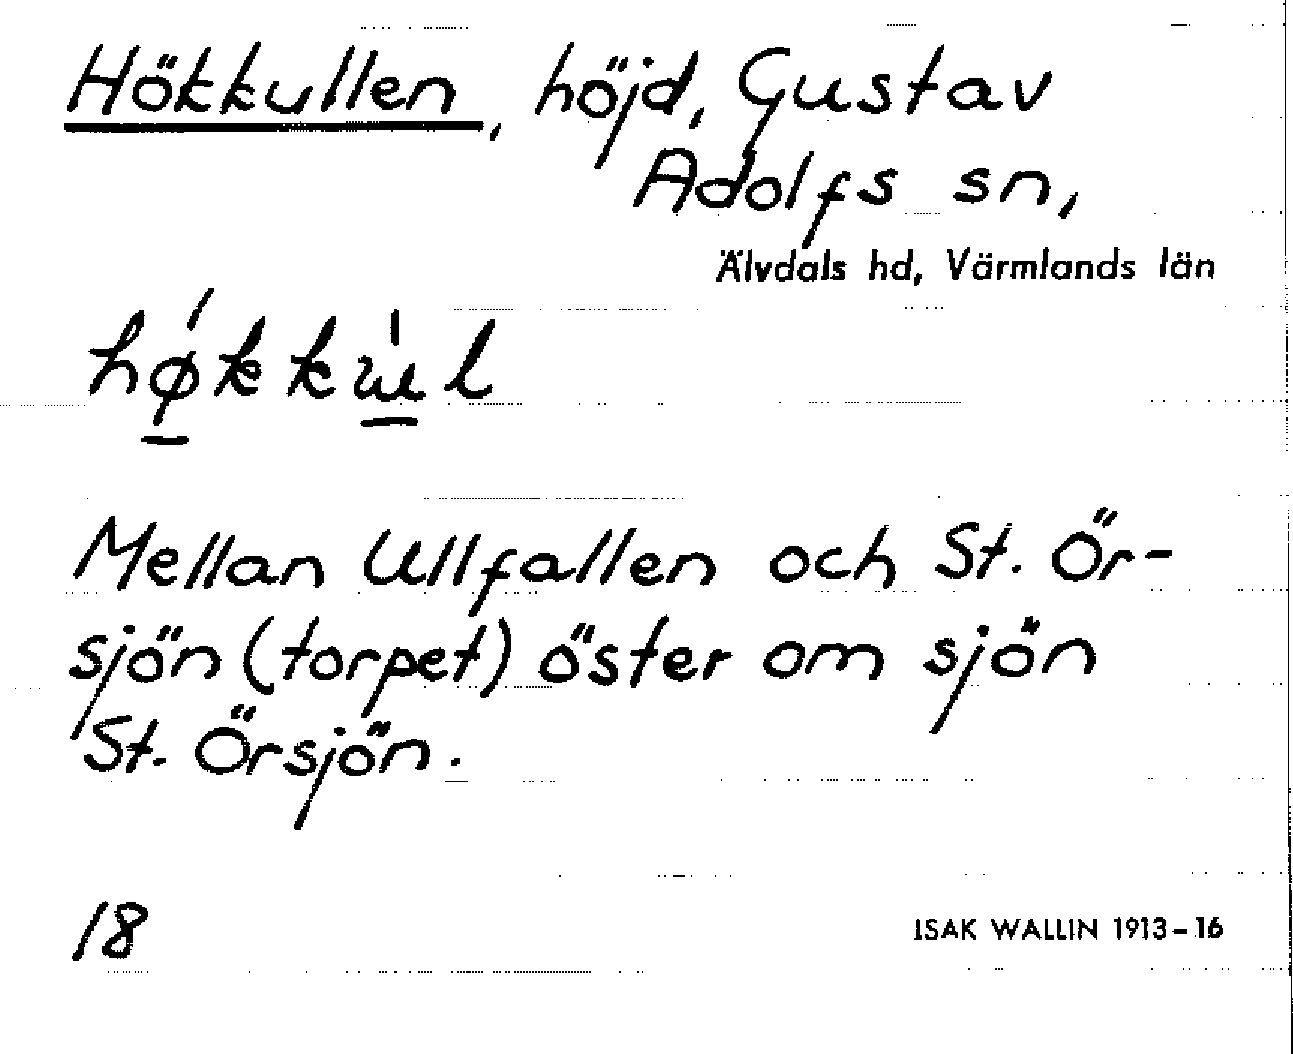 Hökkullen, höjd, Gustav
Adolfs sn,
Älvdals hd, Värmlands län
Mellan Ullfallen och St. Ör-
sjön (torpet) öster om sjön
St. Örsjön.
18
ISAK WALLIN 1913-16